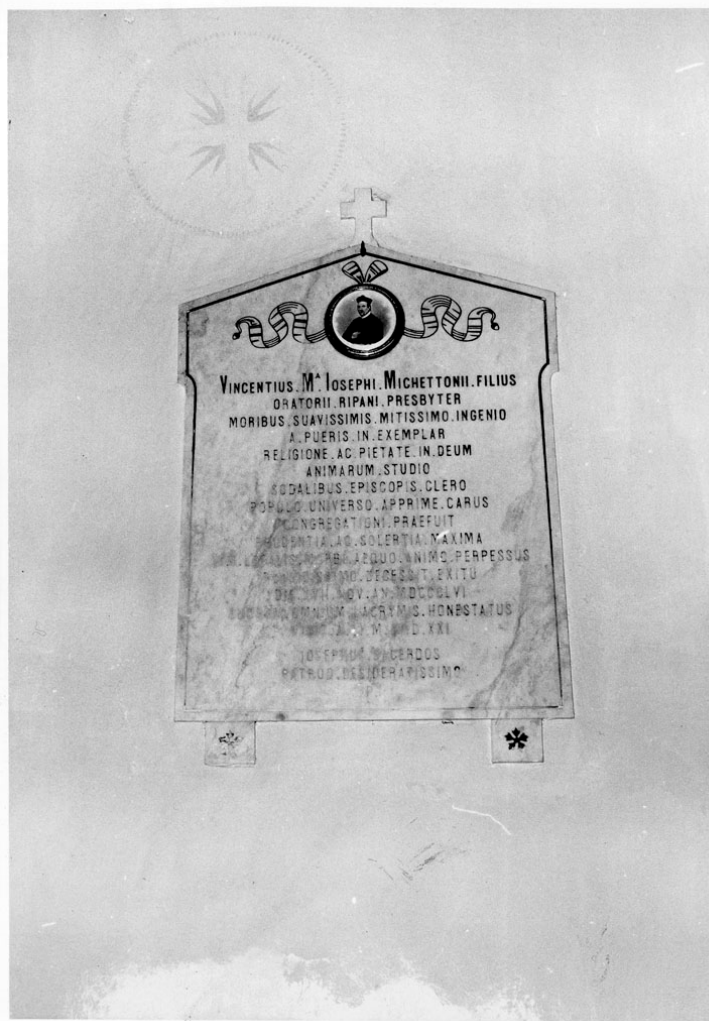 VINCENTIUS. Mᴬ. IOSEPHI. MICHETTONII. FILIUS
ORATORII. RIPANI. PRESBYTER
MORIBUS. SUAVISSIMIS. MITISSIMO. INGENIO
A. PUERIS. IN. EXEMPLAR
RELIGIONE. AC. PIETATE. IN. DEUM
ANIMARUM. STUDIO
SODALIBUS. EPISCOPIS. CLERO
POPULO. UNIVERSO. APPRIME. CARUS
CONGREGATIONI. PRAEFUIT
PRUDENTIA. AC. SOLERTIA. MAXIMA
AEQUO. ANIMO. PERPESSUS
DECESSIT. EXITU
NOV. AN. MDCCCLVI
OMNIUM. LACRYMIS. HONESTATUS
D. XXI
IOSEPHUS. SACERDOS
PATRUO. DESIDERATISSIMO
P